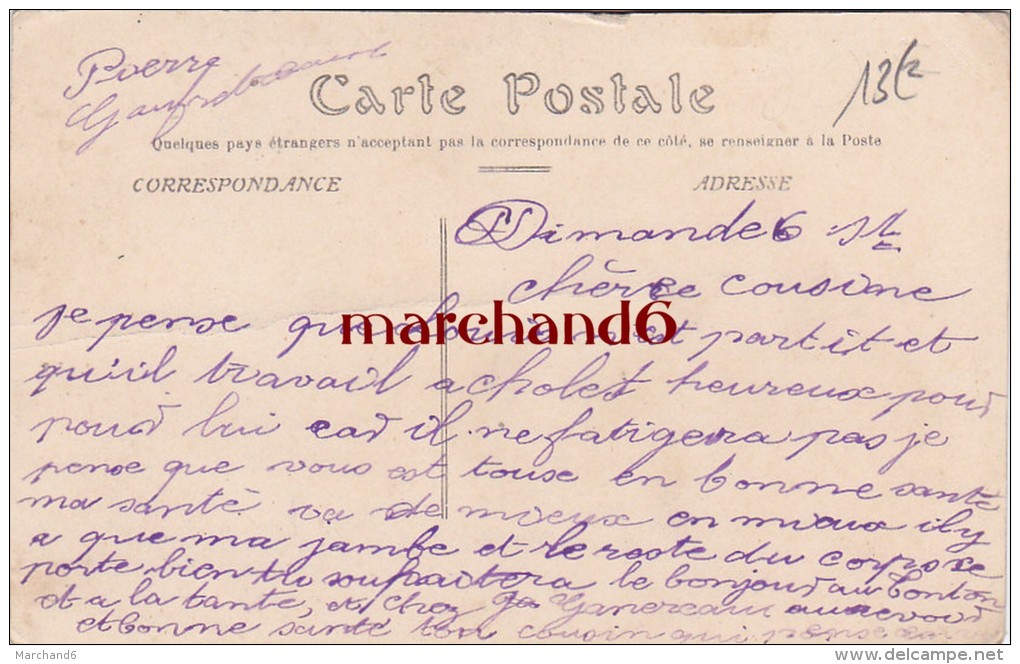 Pierre
13 f 2
Carte Postale
Quelques pays étrangers n'acceptant pas la correspondance de ce côté, se renseigner à la Poste
CORRESPONDANCE
ADRESSE
Dimande 6
chère cousine
marchand6
je pense que est partit et
qu'il travail a cholet heureux pour
pour lui car il ne fatigera pas je
pense que vous est touse en bonne santé
ma santé va de mieux en mieux il y
a que ma jambe et le reste du corps se
porte bien tu souhaitera le bonjour au tonton
et a la tante, et chez Ganereau aurevoir
et bonne santé ton cousin qui pense
Marchand6
www.delcampe.net